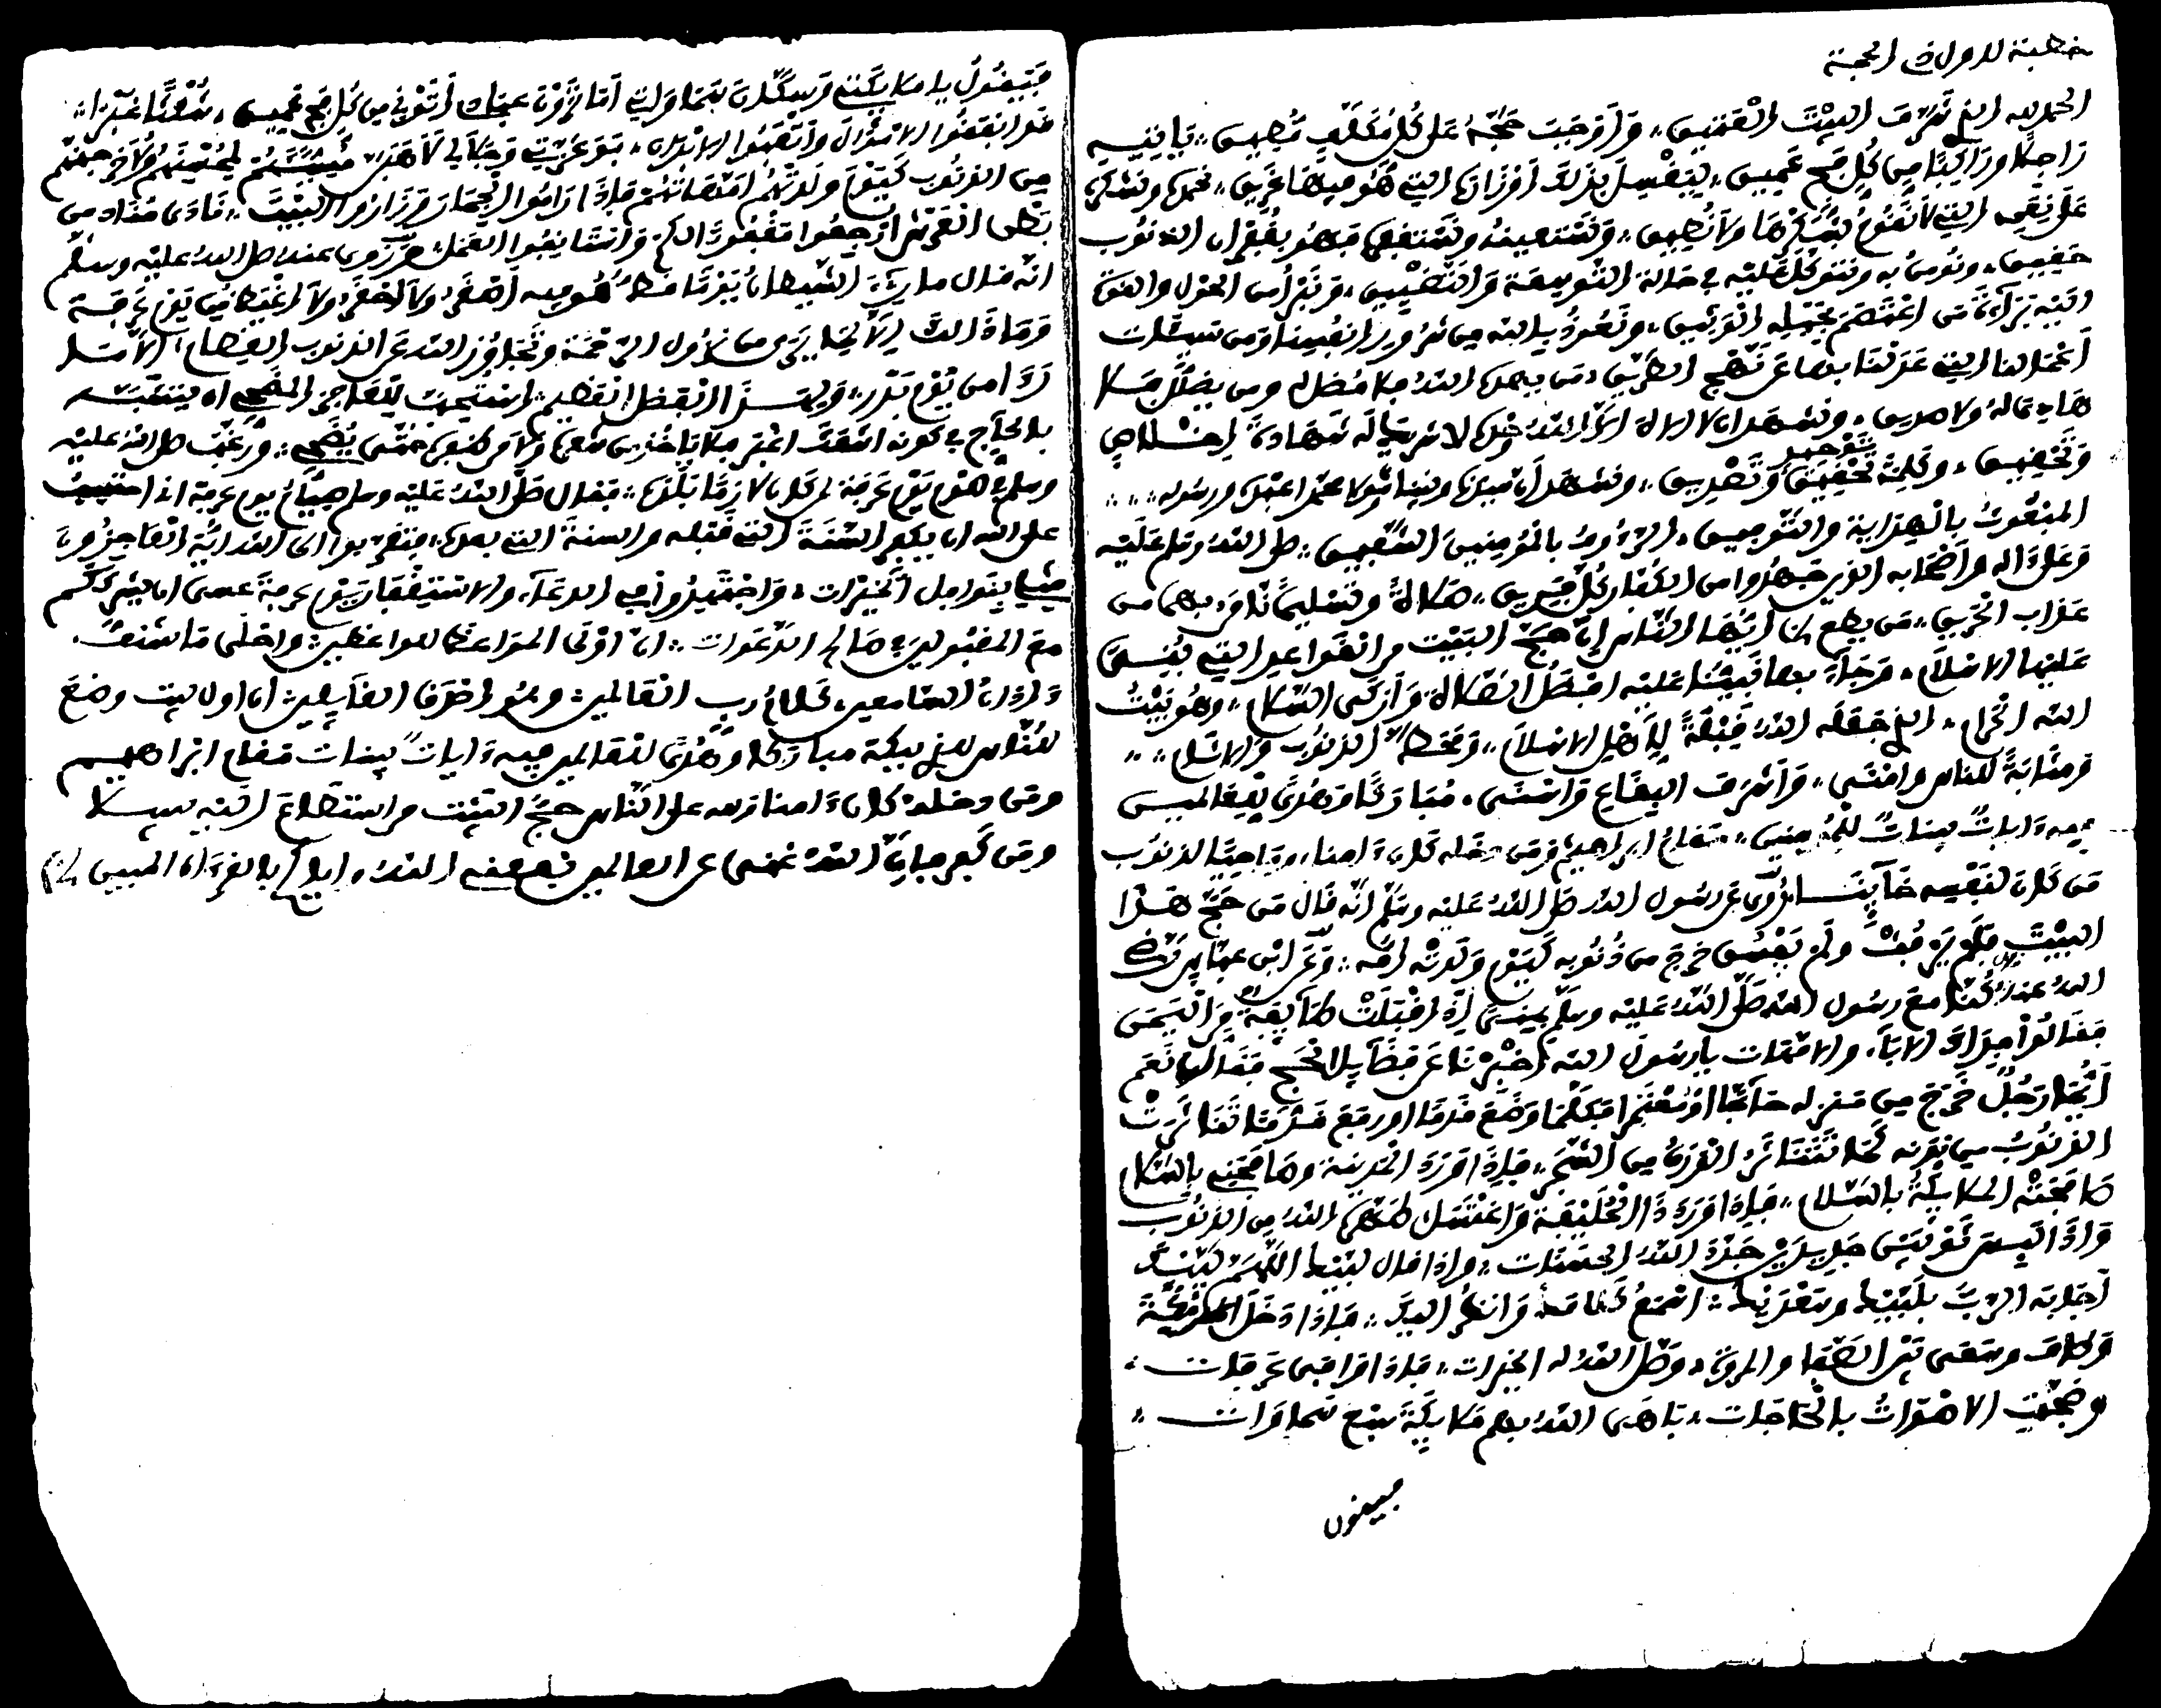 خطبة للاولى في الحجة
الحمد لله الذي شَرَّفَ البيْتَ الْعَتِيق، وَأَوْجَبَ حَجَّهُ عَلى كُلِّ مُكَلَّفٍ مُطِيق، يَأْتِيهِ
رَاجِلاً ورَاكِبًا مِن كُلِّ فَجٍّ عَمِيق، لِيَغْسِلَ بِذَلكَ أوْزَارَهُ التي هُوَ فِيهَا غَرِيق، نحمده ونشكره
عَلَى نِعَمِهِ التي لاَ نَقُومُ بِشُكْرِهَا وَلاَ نُطِيق، وَنَسْتَعِينُهُ ونَسْتَغْفِرُهُ فَهُوَ بِغُفْرَانِ الذنُوبِ
حَقِيق، ونُومِنُ بِهِ ونَتَوَكَّلُ عَلَيْهِ في حَالَةِ التَّوْسِعَةِ وَالتَّضْيِيق، ونَبْرَأُ مِن الحَوْلِ والقُوَّةِ
إلَيْهِ بَرَاءَةَ مَن اعْتَصَمَ بِحَبْلِهِ الْوَثِيق، ونَعُوذُ بالله مِن شُرُورِ أنفُسِنَا وَمِن سَيِّئات
أَعْمَالِنَا التي عَدَلْنَا بِهَا عَن نَهْجِ الطرِيق، مَن يهده اللهُ فلا مُضل له ومن يضلل فلا
هَادِيَ لَهُ ولا صديق، ونشهد ان لا اله الا الله وحْدَهُ لا شريك لَه شَهَادَةَ إخْلاَصٍ
وَتَحْقِيق، وكَلِمَةَ تَوْحيد وَتَصْدِيق، ونشهد أن سيدنا ونبينا ومولانا محمدا عبْده ورسُوله
المبْعُوثُ بِالْهِدَايَةِ والتَّوْفِيق، الرءوفُ بِالْمُومِنِينَ الشَّفِيق، صلى اللهُ وسلم عَلَيْه
وَعَلَى ءاله وأصْحَابِهِ الذين جَاهَدُوا مِن الكُفَّارِ كُلَّ فَرِيق، صَلاَةً وتَسْلِيمًا نَأْمَنُ بهما من
عذاب الحَرِيق، أيُّهَا النَّاسُ إنَّ حَجَّ البَيْتِ من القَوَاعِدِ التي بُنِيَ
عَلَيْهَا الاسْلاَمُ، وَجَاءَ بها نَبِيُّنَا عَلَيْهِ أفْضَلُ الصَّلاَة وَأَزْكَى السَّلام، وهُوَ بَيْتُ
الله الحَرَام، الذي جَعَلَهُ اللهُ قِبْلَةً لأِهْلِ الاسْلاَم، وَمَحَطًّا للذنُوبِ وَالآثَام،
وَمَثَابَةً للناس وأمْنًا، وَأَشْرَفَ البِقَاعِ وَأسْنَى، مُبَارَكًا وَهُدًى لِلْعَالمين
فيه ءايات بينات للمُومِنِين، مقام إبراهيم وَمَن دخله كان ءامنا،
مَن كَانَ لنفْسِهِ خَائِنًا، رُوِيَ عَن رسُول الله صلى اللهُ عَلَيْهِ وسلم أنه قَالَ مَن حَجَّ هَذَا
البَيْتَ فَلَمْ يَرْفُثْ ولَمْ يَفْسُقْ خرج من ذُنُوبِهِ كَيَوْمِ وَلَدَتْهُ أُمُّه، وعَن ابْن عبَّاس رَضي
اللهُ عنه كُنَّا معَ رسُول الله صَلَّى اللهُ عَلَيْهِ وسلم بِمِنًى إذَ اقْبَلَتْ طَائِفَةٌ مِنَ اليَمَن
فَقَالُوا فِدَاكَ الآبَاء والامَّهَات يا رسُولَ الله أَخْبِرْنَا عَن فَضَائِلِ الحَجِّ فَقَالَ نَعَم
أيُّمَا رَجُلٍ خَرَجَ مِن منزله حَاجًّا أوْ مُعْتَمِرًا فَكُلَّمَا وَضَعَ قَدَمًا أو رفع قَدَمًا تَنَاثَرَتْ
الذنُوبُ مِن بَدَنِهِ كَمَا يَتَنَاثَرُ الوَرَقُ مِن الشَّجَر، فَإذَا وَرَدَ المَدِينَةَ وصَافَحَني بِالسَّلام
صَافَحَتْهُ الملائِكَةُ بِالسَّلام، فَإذَا وَرَدَ ذَا الْحُلَيْفَةِ وَاغْتَسَلَ طَهَّرَهُ اللهُ مِن الذنُوب
وَإذَا لَبِسَ ثَوْبَيْن جَدِيدَيْن جَدَّدَ اللهُ الحَسَنَات، وإذا قال لَبَّيْك اللَّهُمَّ لَبَّيْك
أجَابَه الربُّ بِلَبَّيْك وسَعْدَيْك، أَسْمَعُ كَلاَمَك وَأنظُر إلَيْك، فإذا دَخَلَ مَكَّةَ
وَطَاف وسَعَى بَيْنَ الصَّفَا والمروَة، وَصَلَ اللهُ له الخَيْرات، فإذا وَقَفَ بعَرَفَات
وضَجَّتِ الأصْوَاتُ بِالْحَاجَات، بَاهَى اللهُ بهم مَلاَئِكَةَ سَبْعِ سَمَاوَات
فيقول
فَيَقُولُ يا ملائكَتي وسُكَّانَ سَمَاوَاتي أَمَا تَرَوْنَ عِبَادي أَتَوْنِي مِن كُلِّ فَجٍّ عَمِيق، شُعْثًا غُبْرًا،
قد انفَقُوا الامْوَالَ وأَتْعَبُوا الابْدَان، فَوَعِزَّتِي وَجَلاَلي لأَهَبَنَّ مُسِيئَهُمْ لِمُحْسِنِهِمْ وَلأُخْرِجَنَّهُم
مِن الذنُوبِ كَيَوْمِ وَلَدَتْهُمُ أمَّهَاتُهُمْ فَإذَا رَمَوُا الْجِمَارَ وَزَارُوا الْبَيْتَ، نَادَى مُنَادٍ من
بُطْنَانِ الْعَرْشِ ارْجِعُوا مَغْفُورًا لكم وَاسْتَانِفُوا العَمَل، ورُوِيَ عنه صلى اللهُ عليْه وسلم
انه قال ما رِيءَ الشَّيطَانُ يَوْمًا هُو فيه أَصْغَرُ ولا أحْقَرُ وَلاَ أغْيَظُ مِن يَوْمِ عَرَفَة
وَمَا ذَاك إلاَّ لِمَا يَرَى من نُزُولِ الرَّحْمَة وتَجَاوُزِ اللهِ عَن الذنوبِ العِظَام، إلا مَا
رَءَا مِن يَوْمِ بَدْر، وَلِهَذَا الفَضْلِ الْعَظِيم، اسْتُحِبَّ لِلْعَاجِزِ أن يتشبه
بالحَاجِّ في كَونه اشْعَثَ أغْبَر فلا يَاخُذ مِن شَعَرِهِ وَلاَ مِن ظُفُرِهِ حَتَّى يُضَحِّيَ، ورغَّبَ صلى اللهُ عليْه
وسلم في صَوْمِ يَوْمِ عَرَفَة، فقال صَلى اللهُ عَليْه وسلم صِيَامُ يوم عرفة انِّي أحتسب
على الله ان يكفر السَّنَةَ التي قَبْله والسنَةَ التي بعده، فتقَرَّبوا الى الله أَيُّهَا العَاجِزُونَ
بِنَوَافِل الْخَيْرات، وَاجْتَهِدُوا في الدعَاء والاسْتِغْفَار يَوْمَ عرفة عسى ان يُشرككم
مَعَ المقْبُولِينَ في صَالِح الدَّعَوات، انَّ أوْلَى المَوَاعِظ للواعظين، وأحْلَى ما شنف
ءاذان السَّامعين، كَلاَمُ رب العَالمين، وهُو أصْدَق القَائِلين، إن أول بيت وضعَ
للنَّاس للذي ببكة مباركا وهُدًى للعالمين فيه ءايات بينات مقام ابراهيم
ومن دخله كان ءامنا ولله على النَّاس حِجُّ البَيْت من استَطاعَ إلَيْه سبيلا
ومَن كَفر فإنَّ اللهَ غني عن العالمين